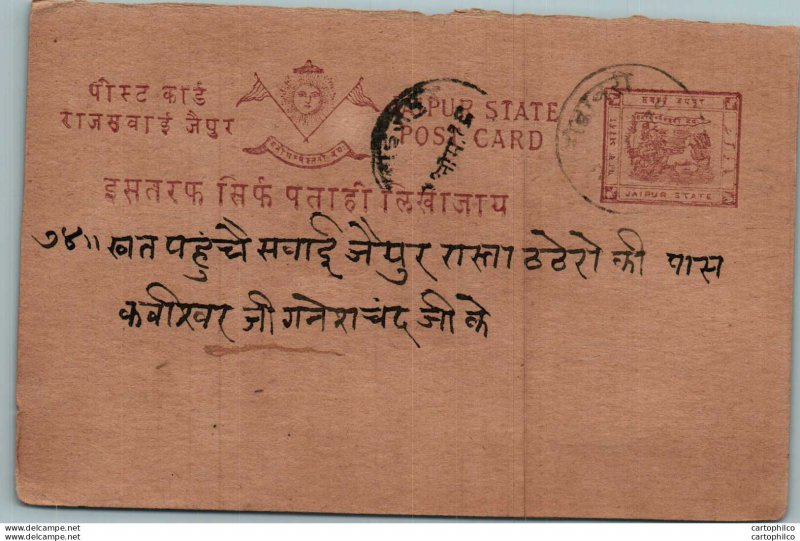 पोस्ट कार्ड
राज सवाई जैपुर
JAIPUR STATE
POST CARD
सवाई जयपुर
JAIPUR STATE
इसतरफ सिर्फ पताही लिखाजाय
७४॥ खत पहुंचै सवाई जैपुर रास्ता ठठेरो की पास
कवीश्वर जी गनेशचंद जी के
www.delcampe.net
cartophilco
www.delcampe.net
cartophilco